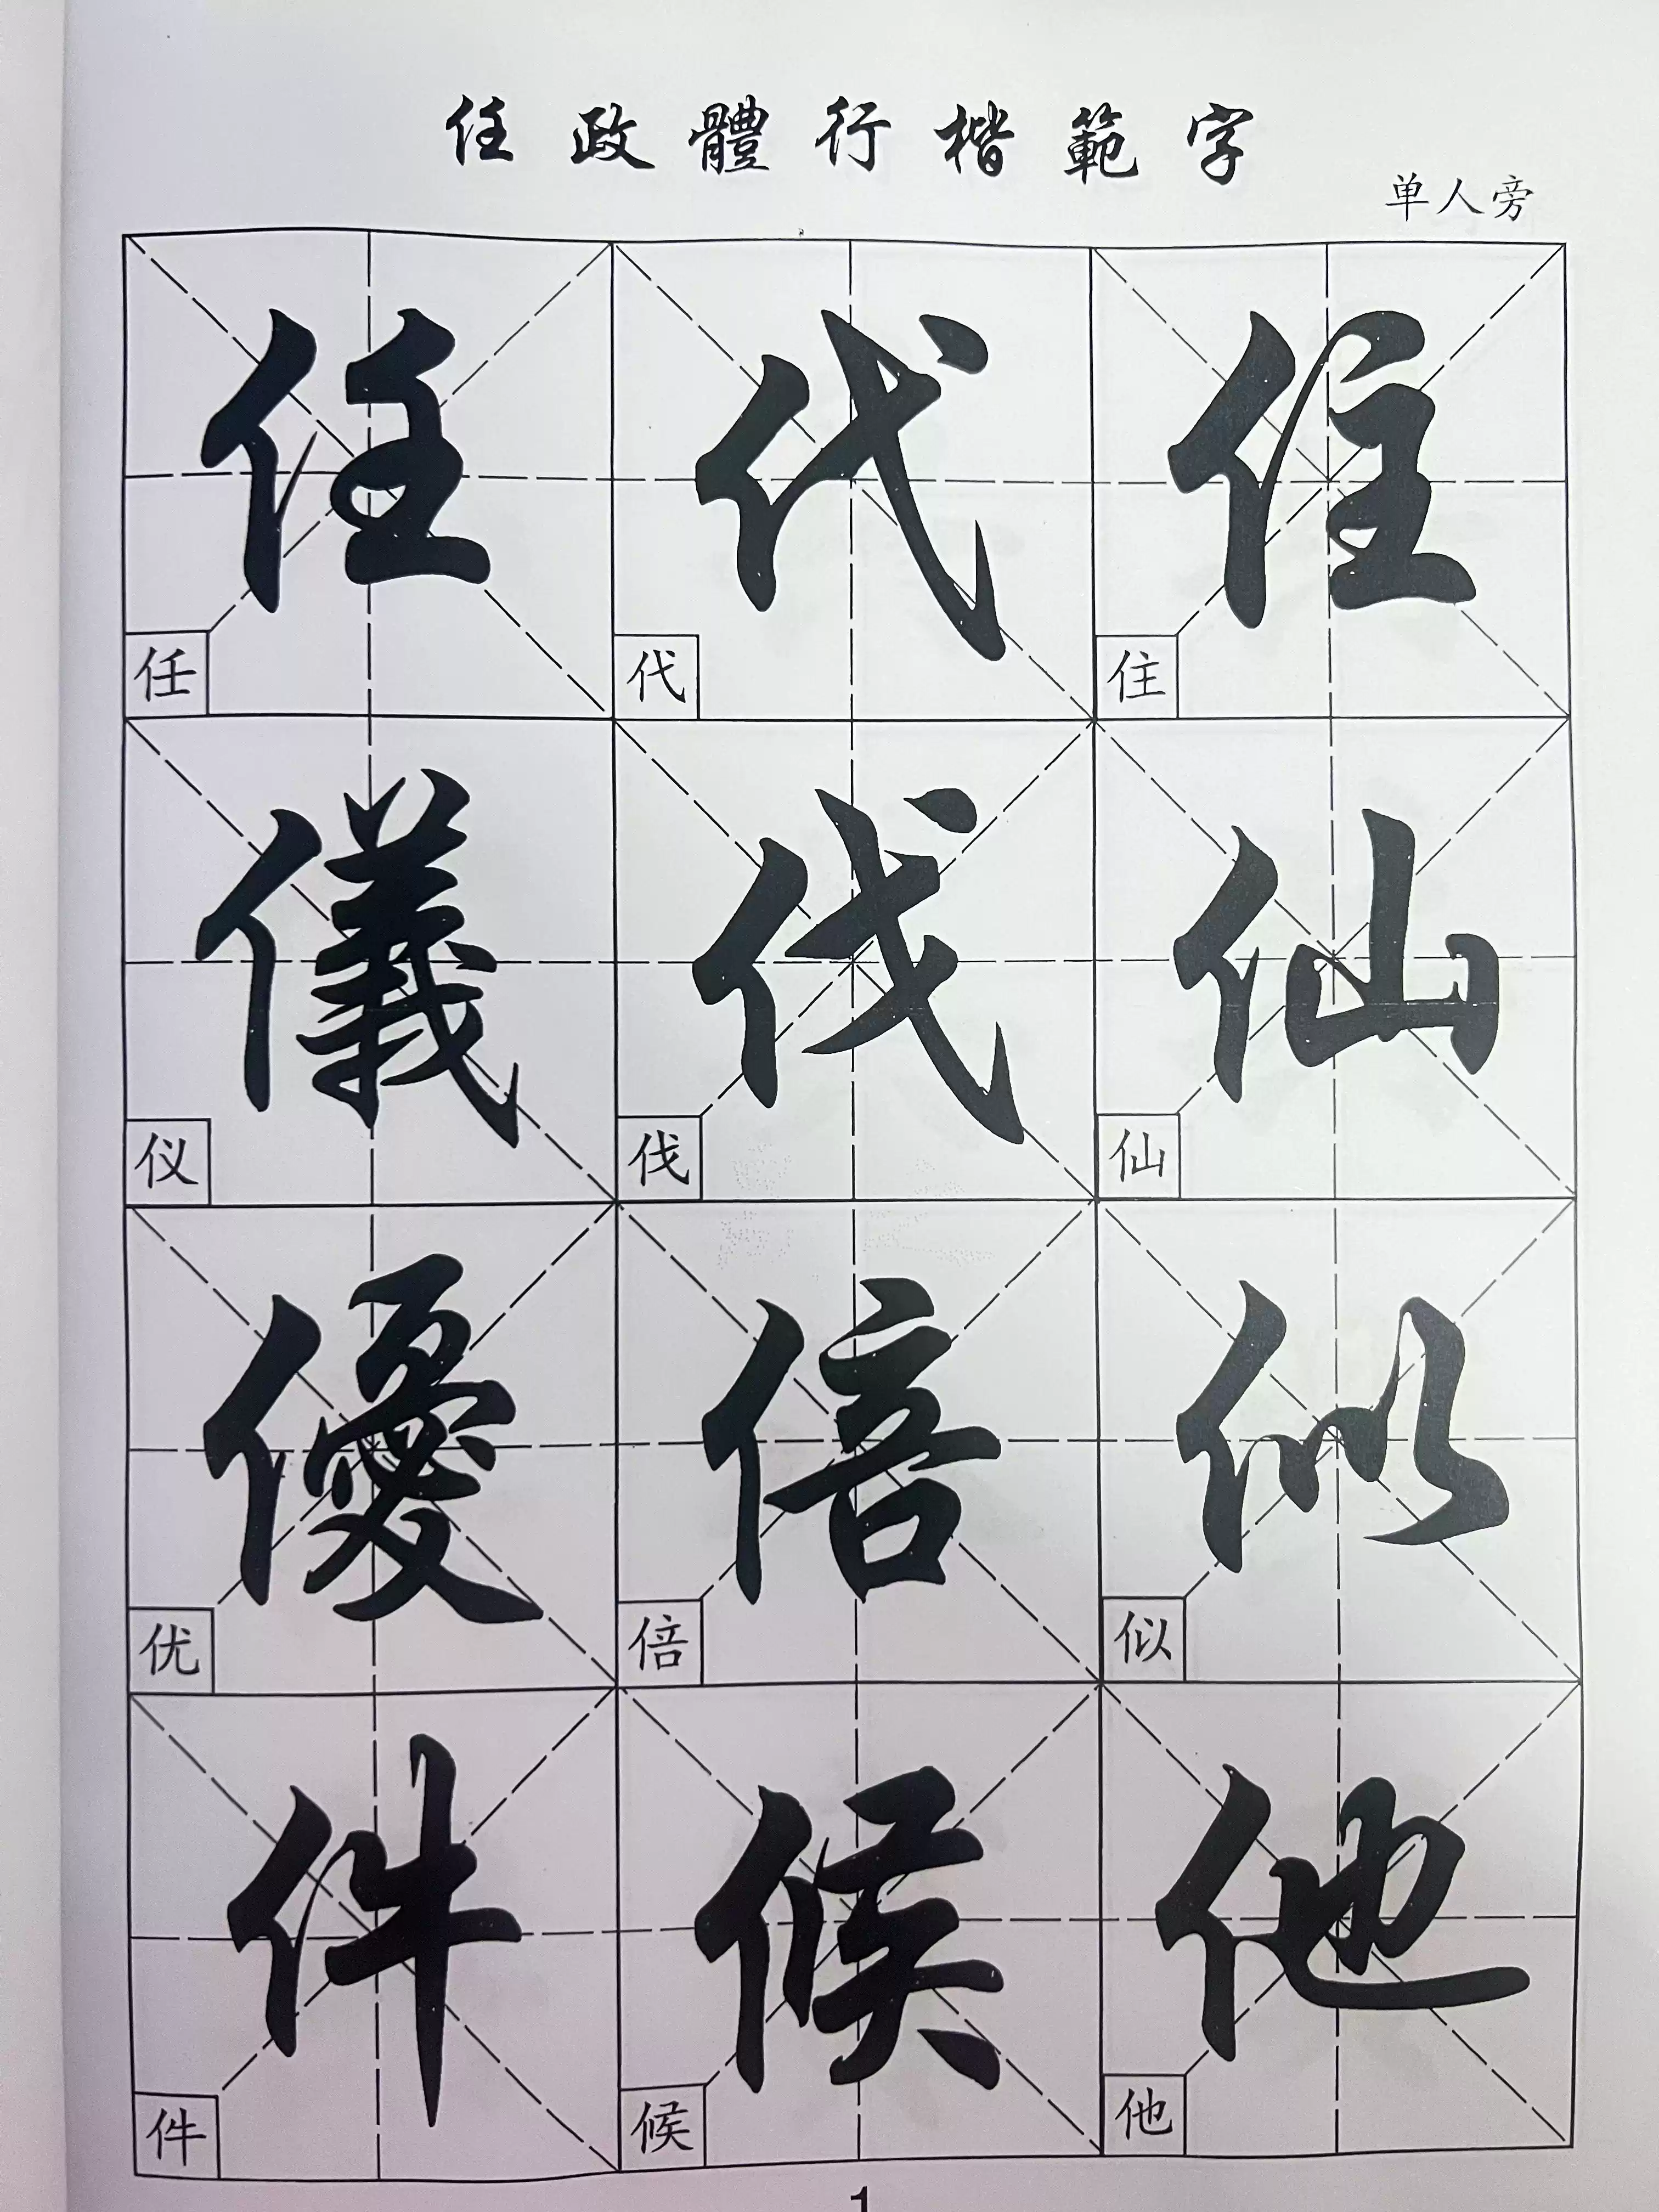 任政體行楷範字
单人旁
任 代 住
任 代 住
儀 伐 仙
仪 伐 仙
優 倍 似
优 倍 似
件 候 他
件 候 他
1